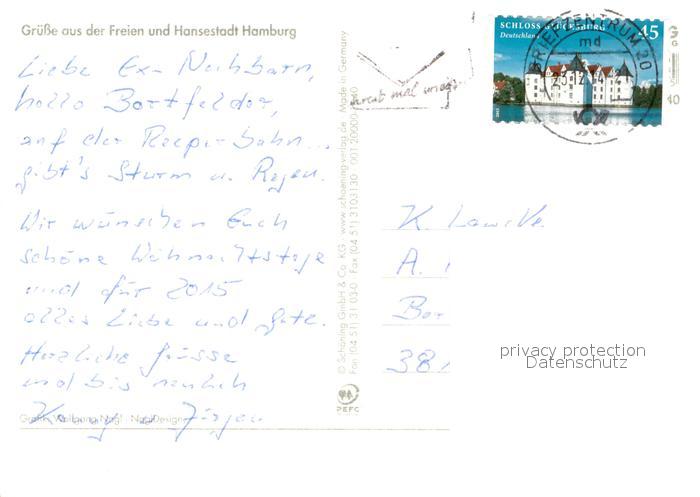 Grüße aus der Freien und Hansestadt Hamburg
Liebe Ex-Nachbarn,
hallo Bortfelder,
auf der Reeperbahn...
gibt's Sturm u. Regen.
Wir wünschen Euch
schöne Weihnachtstage
und für 2015
alles Liebe und Gute.
Herzliche Grüsse
und bis neulich
Jürgen
Grafik: Wolfgang Nagl · NaglDesign
© Schöning GmbH & Co. KG · www.schoening-verlag.de · Made in Germany
Fon (04 51) 31 03-0 · Fax (04 51) 3103130
PEFC
SCHLOSS GLÜCKSBURG
Deutschland
45
BRIEFZENTRUM 20
md
K.
A.
Bor
38
privacy protection
Datenschutz